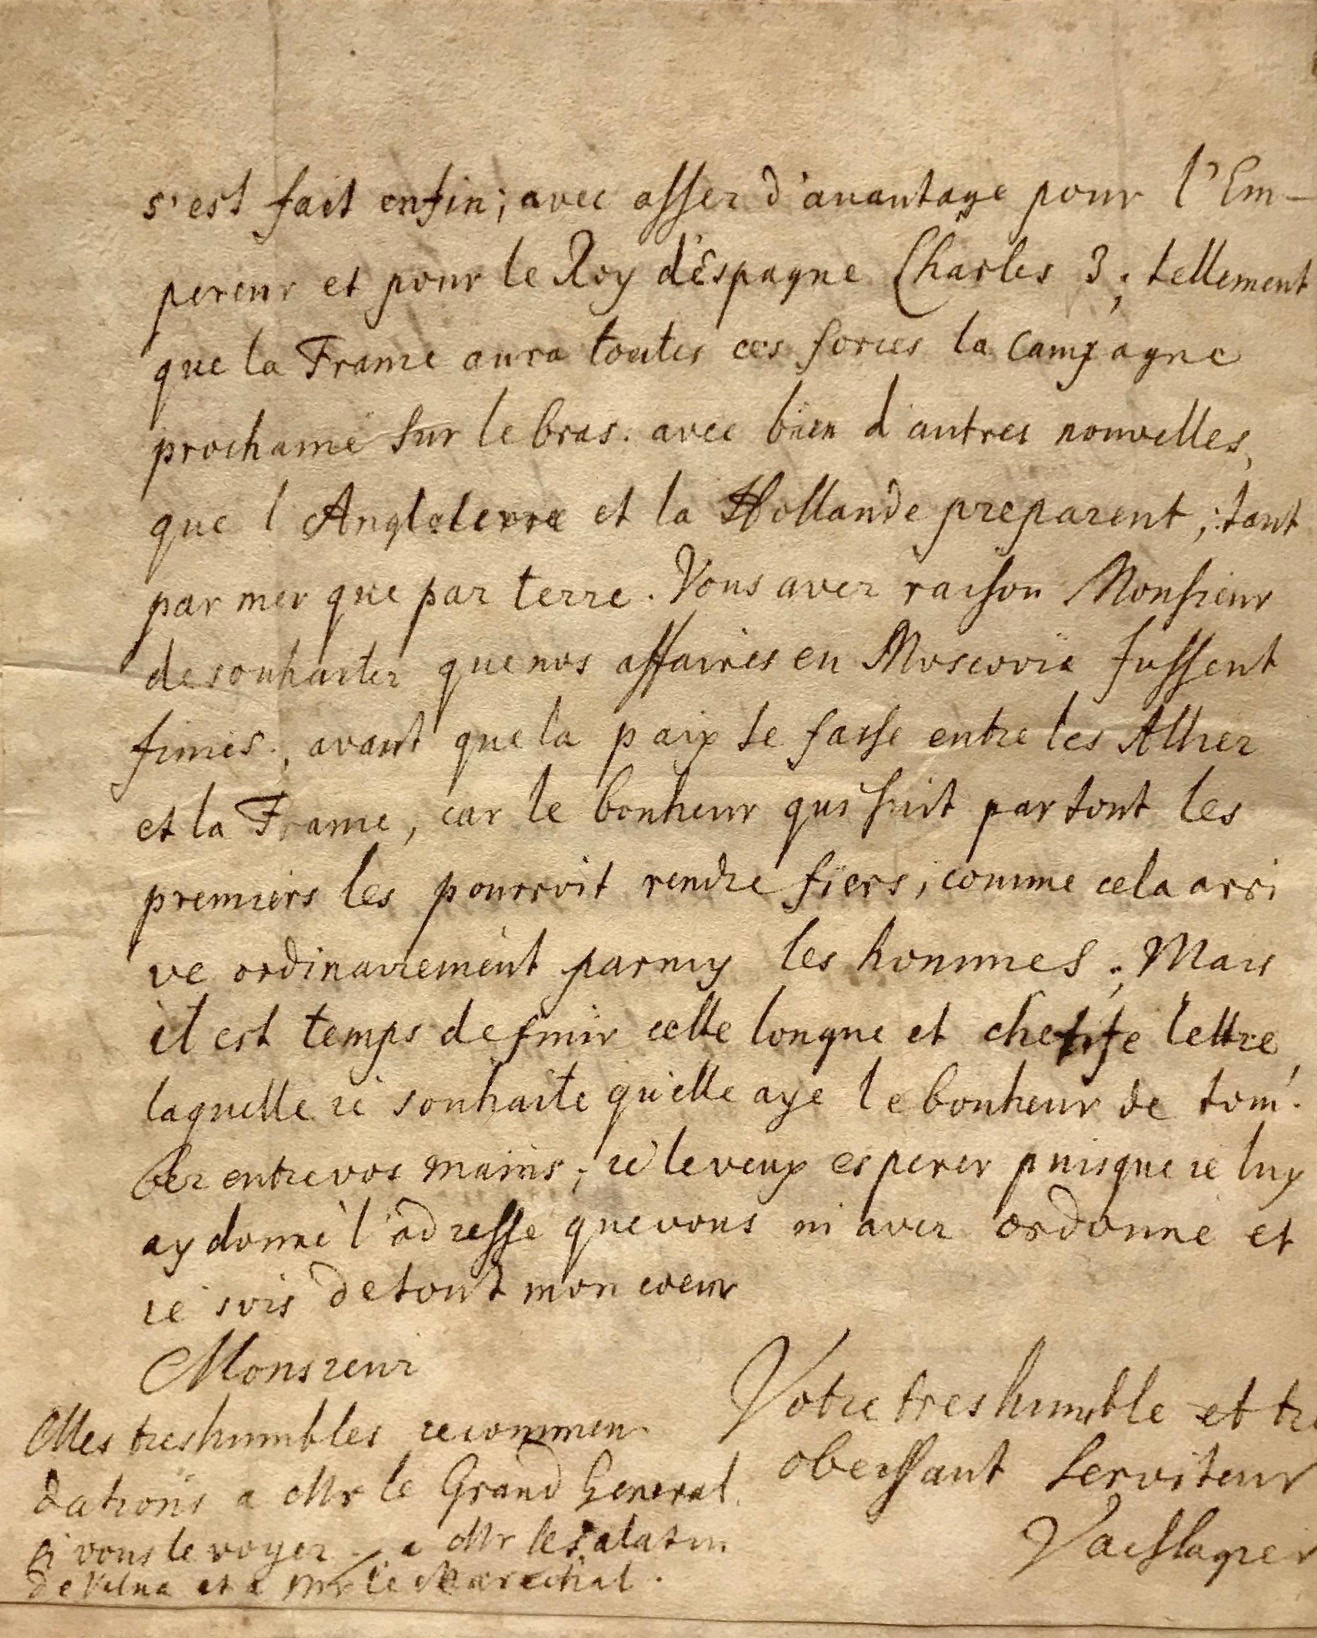 s'est fait enfin; avec asser d'avantage pour l'Em-
pereur et pour le Roy d'Espagne Charles 3; tellement
que la France aura toutes ces forces la campagne
prochaine sur le bras. avec bien d'autres nouvelles,
que l'Angleterre et la Hollande preparent; tant
par mer que par terre. Vous avez raison Monsieur
de souhaiter que nos affaires en Moscovie fussent
finies, avant que la paix se fasse entre les Alliez
et la France, car le bonheur qui suit partout les
premiers les pourroit rendre fiers, comme cela arri
ve ordinairement parmy les hommes; Mais
il est temps de finir cette longue et chetife lettre,
laquelle ie souhaite qu'elle aye le bonheur de tom-
ber entre vos mains; ie le veux esperer puisque ie luy
ay donné l'adresse que vous m'avez ordonné et
ie suis de tout mon coeur
Monsieur
Votre tres humble et tre
obeissant Serviteur
Mes tres humbles recommen-
dations a Mr le Grand General
si vous le voyez a Mr le Palatin
de Vilna et a Mr le Marechal.